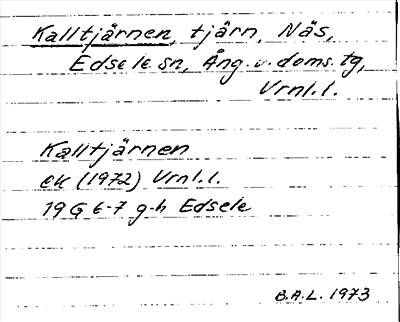 Kalltjärnen, tjärn, Näs,
Edsele sn, Ång. v. doms. tg,
Vrnl. l.
Kalltjärnen
ek (1972) Vrnl. l.
19 G 6-7 g-h Edsele
B.A.L. 1973